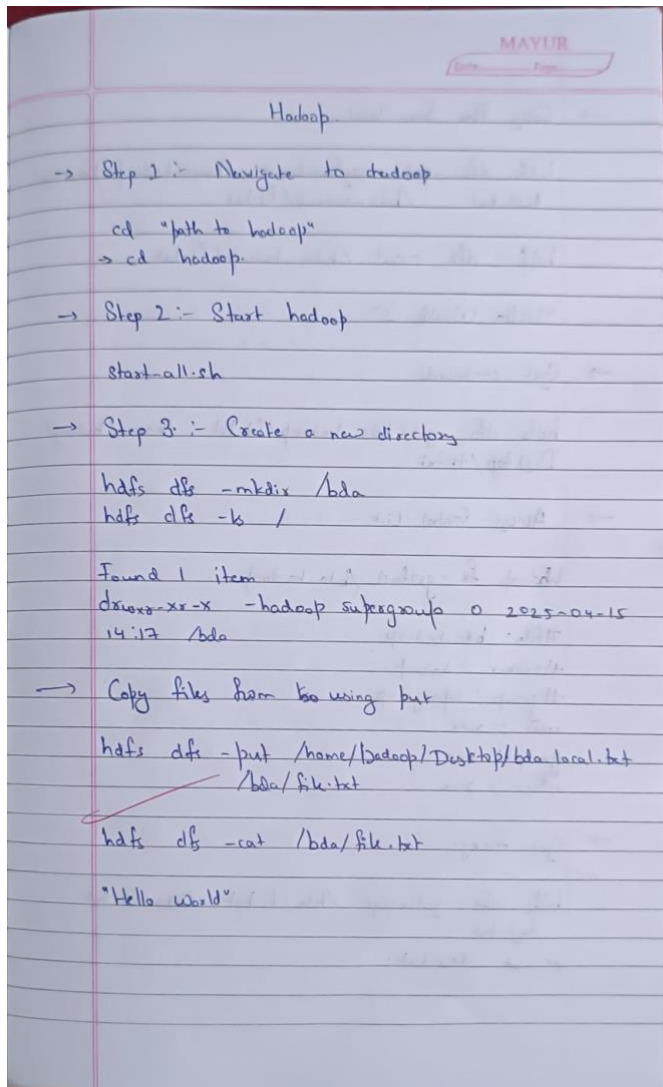 MAYUR
Date Page
Hadoop
→ Step 1 :- Navigate to hadoop
cd "path to hadoop"
→ cd hadoop.
→ Step 2 :- Start hadoop
start-all.sh
→ Step 3. :- Create a new directory
hdfs dfs -mkdir /bda
hdfs dfs -ls /
Found 1 item
drwxr-xr-x -hadoop supergroup 0 2025-04-15
14:17 /bda
→ Copy files from using put
hdfs dfs -put /home/hadoop/Desktop/bda local.txt
/bda/file.txt
hdfs dfs -cat /bda/file.txt
"Hello World"